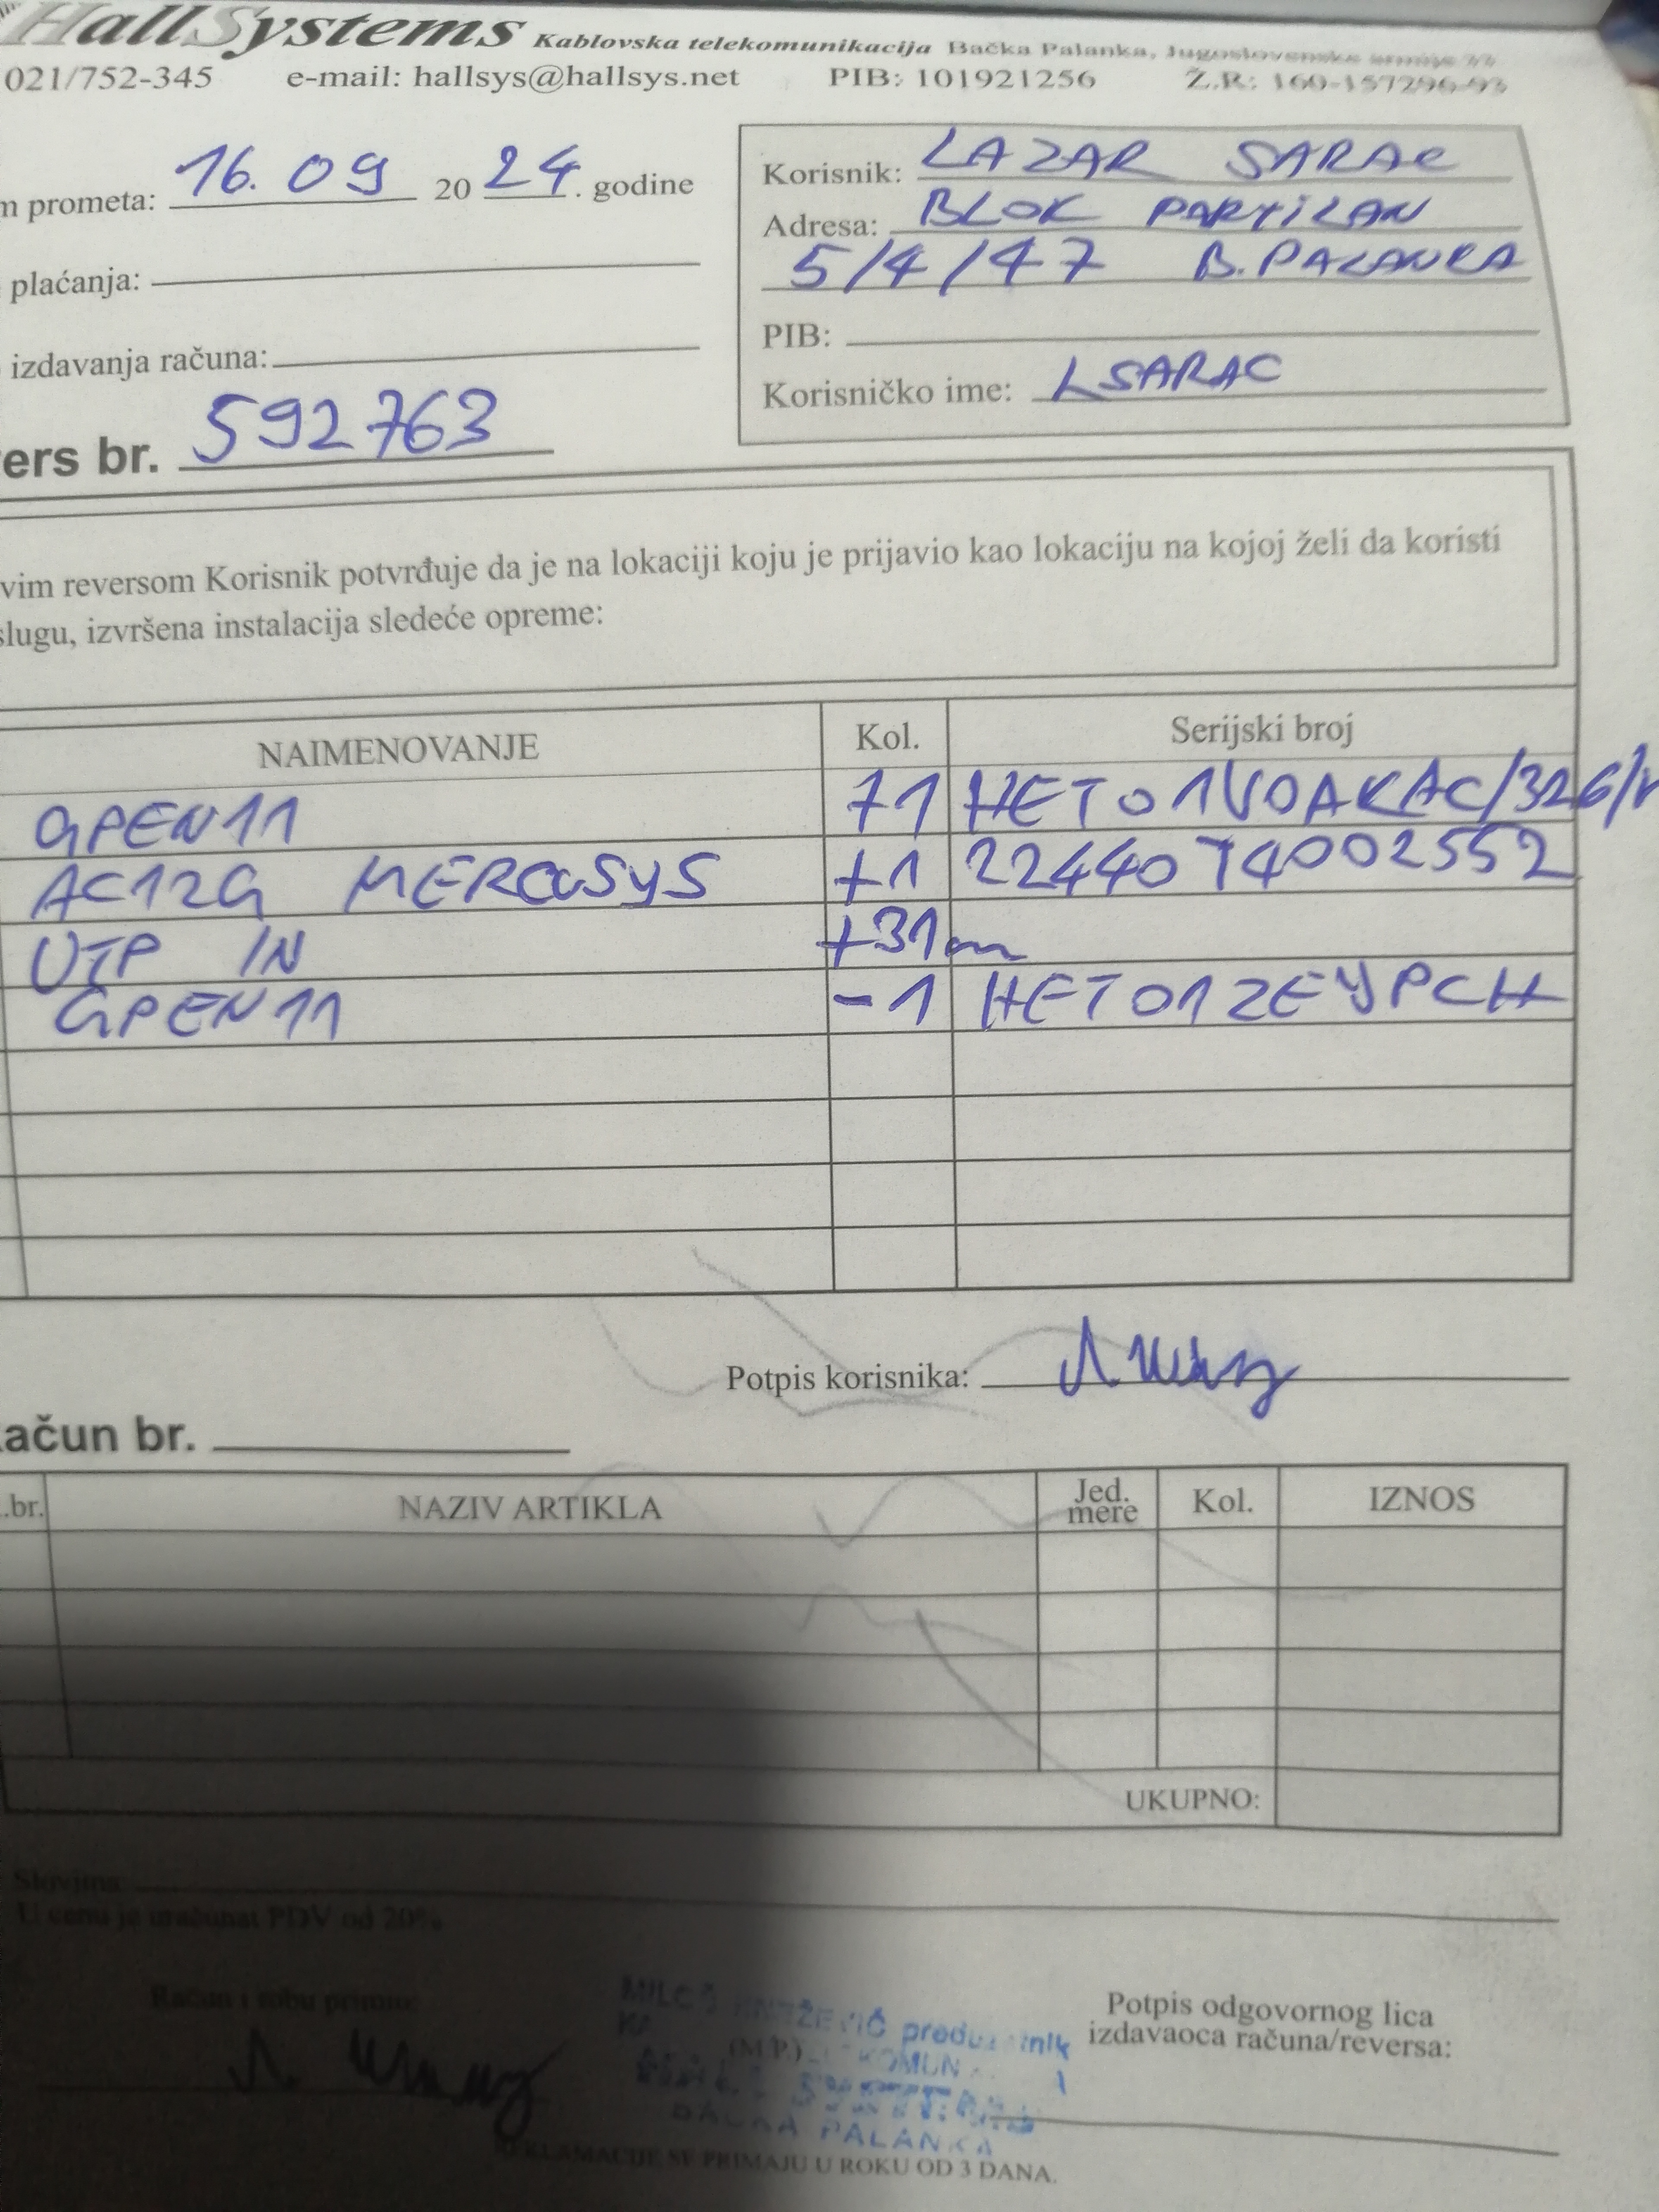 HallSystems Kablovska telekomunikacija Bačka Palanka, Jugoslovenske armije
021/752-345 e-mail: hallsys@hallsys.net PIB: 101921256 Ž.R: 160-157296-93
m prometa: 16. 09 20 24. godine
Korisnik: LAZAR SARAC
Adresa: BLOK PARTIZAN
5/4/47 B.PALANKA
plaćanja:
PIB:
izdavanja računa:
Korisničko ime: LSARAC
ers br. 592763
vim reversom Korisnik potvrđuje da je na lokaciji koju je prijavio kao lokaciju na kojoj želi da koristi
slugu, izvršena instalacija sledeće opreme:
NAIMENOVANJE Kol. Serijski broj
GPEN11 +1 HET01VOAKAC/326/
AC12G MERCUSYS +1 2244074002552
UTP IN +31m
GPEN11 -1 HET01ZEYPCH
Potpis korisnika:
ačun br.
.br. NAZIV ARTIKLA Jed. mere Kol. IZNOS
UKUPNO:
Slovima
U cenu je uračunat PDV od 20%
Račun i robu primio:
Potpis odgovornog lica
izdavaoca računa/reversa:
(M.P.)
BAČKA PALANKA
REKLAMACIJE SE PRIMAJU U ROKU OD 3 DANA.